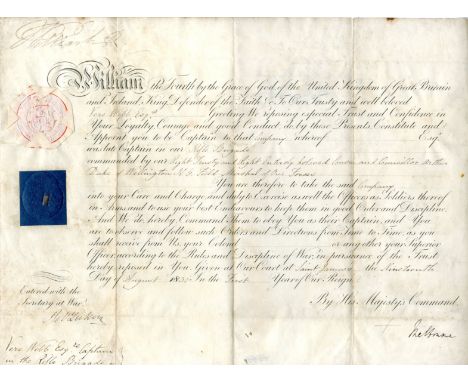 William the Fourth by the Grace of God, of the United Kingdom of Great Britain
and Ireland King, Defender of the Faith &c. To Our Trusty and well beloved
Vere Webb Esq. Greeting We reposing especial Trust and Confidence in
Your Loyalty, Courage and good Conduct, do by these Presents Constitute and
Appoint you to be Captain of that Company whereof Esq.
was late Captain in our Rifle Brigade
commanded by our Right Trusty and Right Entirely beloved Cousin and Councillor Arthur
Duke of Wellington K.G. Field Marshal of Our Forces
You are therefore to take the said Company
into your Care and Charge and duly to Exercise as well the Officers as Soldiers thereof
in Arms and to use your best Endeavours to keep them in good Order and Discipline
And We do hereby Command them to obey You as their Captain, and You
are to observe and follow such Orders and Directions from Time to Time as you
shall receive from Us, your Colonel or any other your Superior
Officer, according to the Rules and Discipline of War, in pursuance of the Trust
hereby reposed in You. Given at Our Court at Saint James's the Nineteenth
Day of August 1830 In the First Year of Our Reign
By His Majesty's Command
Entered with the
Secretary at War
Vere Webb Esqre Captain
in the Rifle Brigade